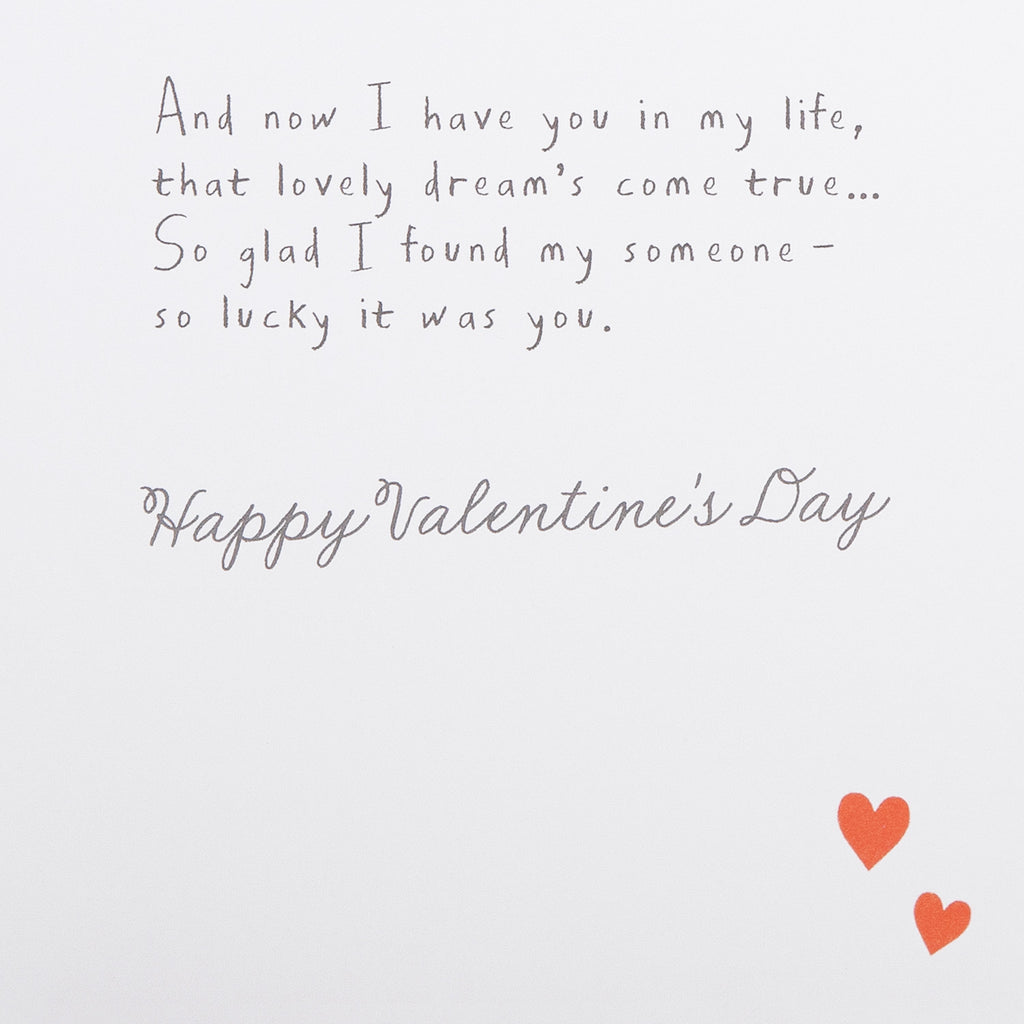 And now I have you in my life,
that lovely dream's come true...
So glad I found my someone –
so lucky it was you.
Happy Valentine's Day